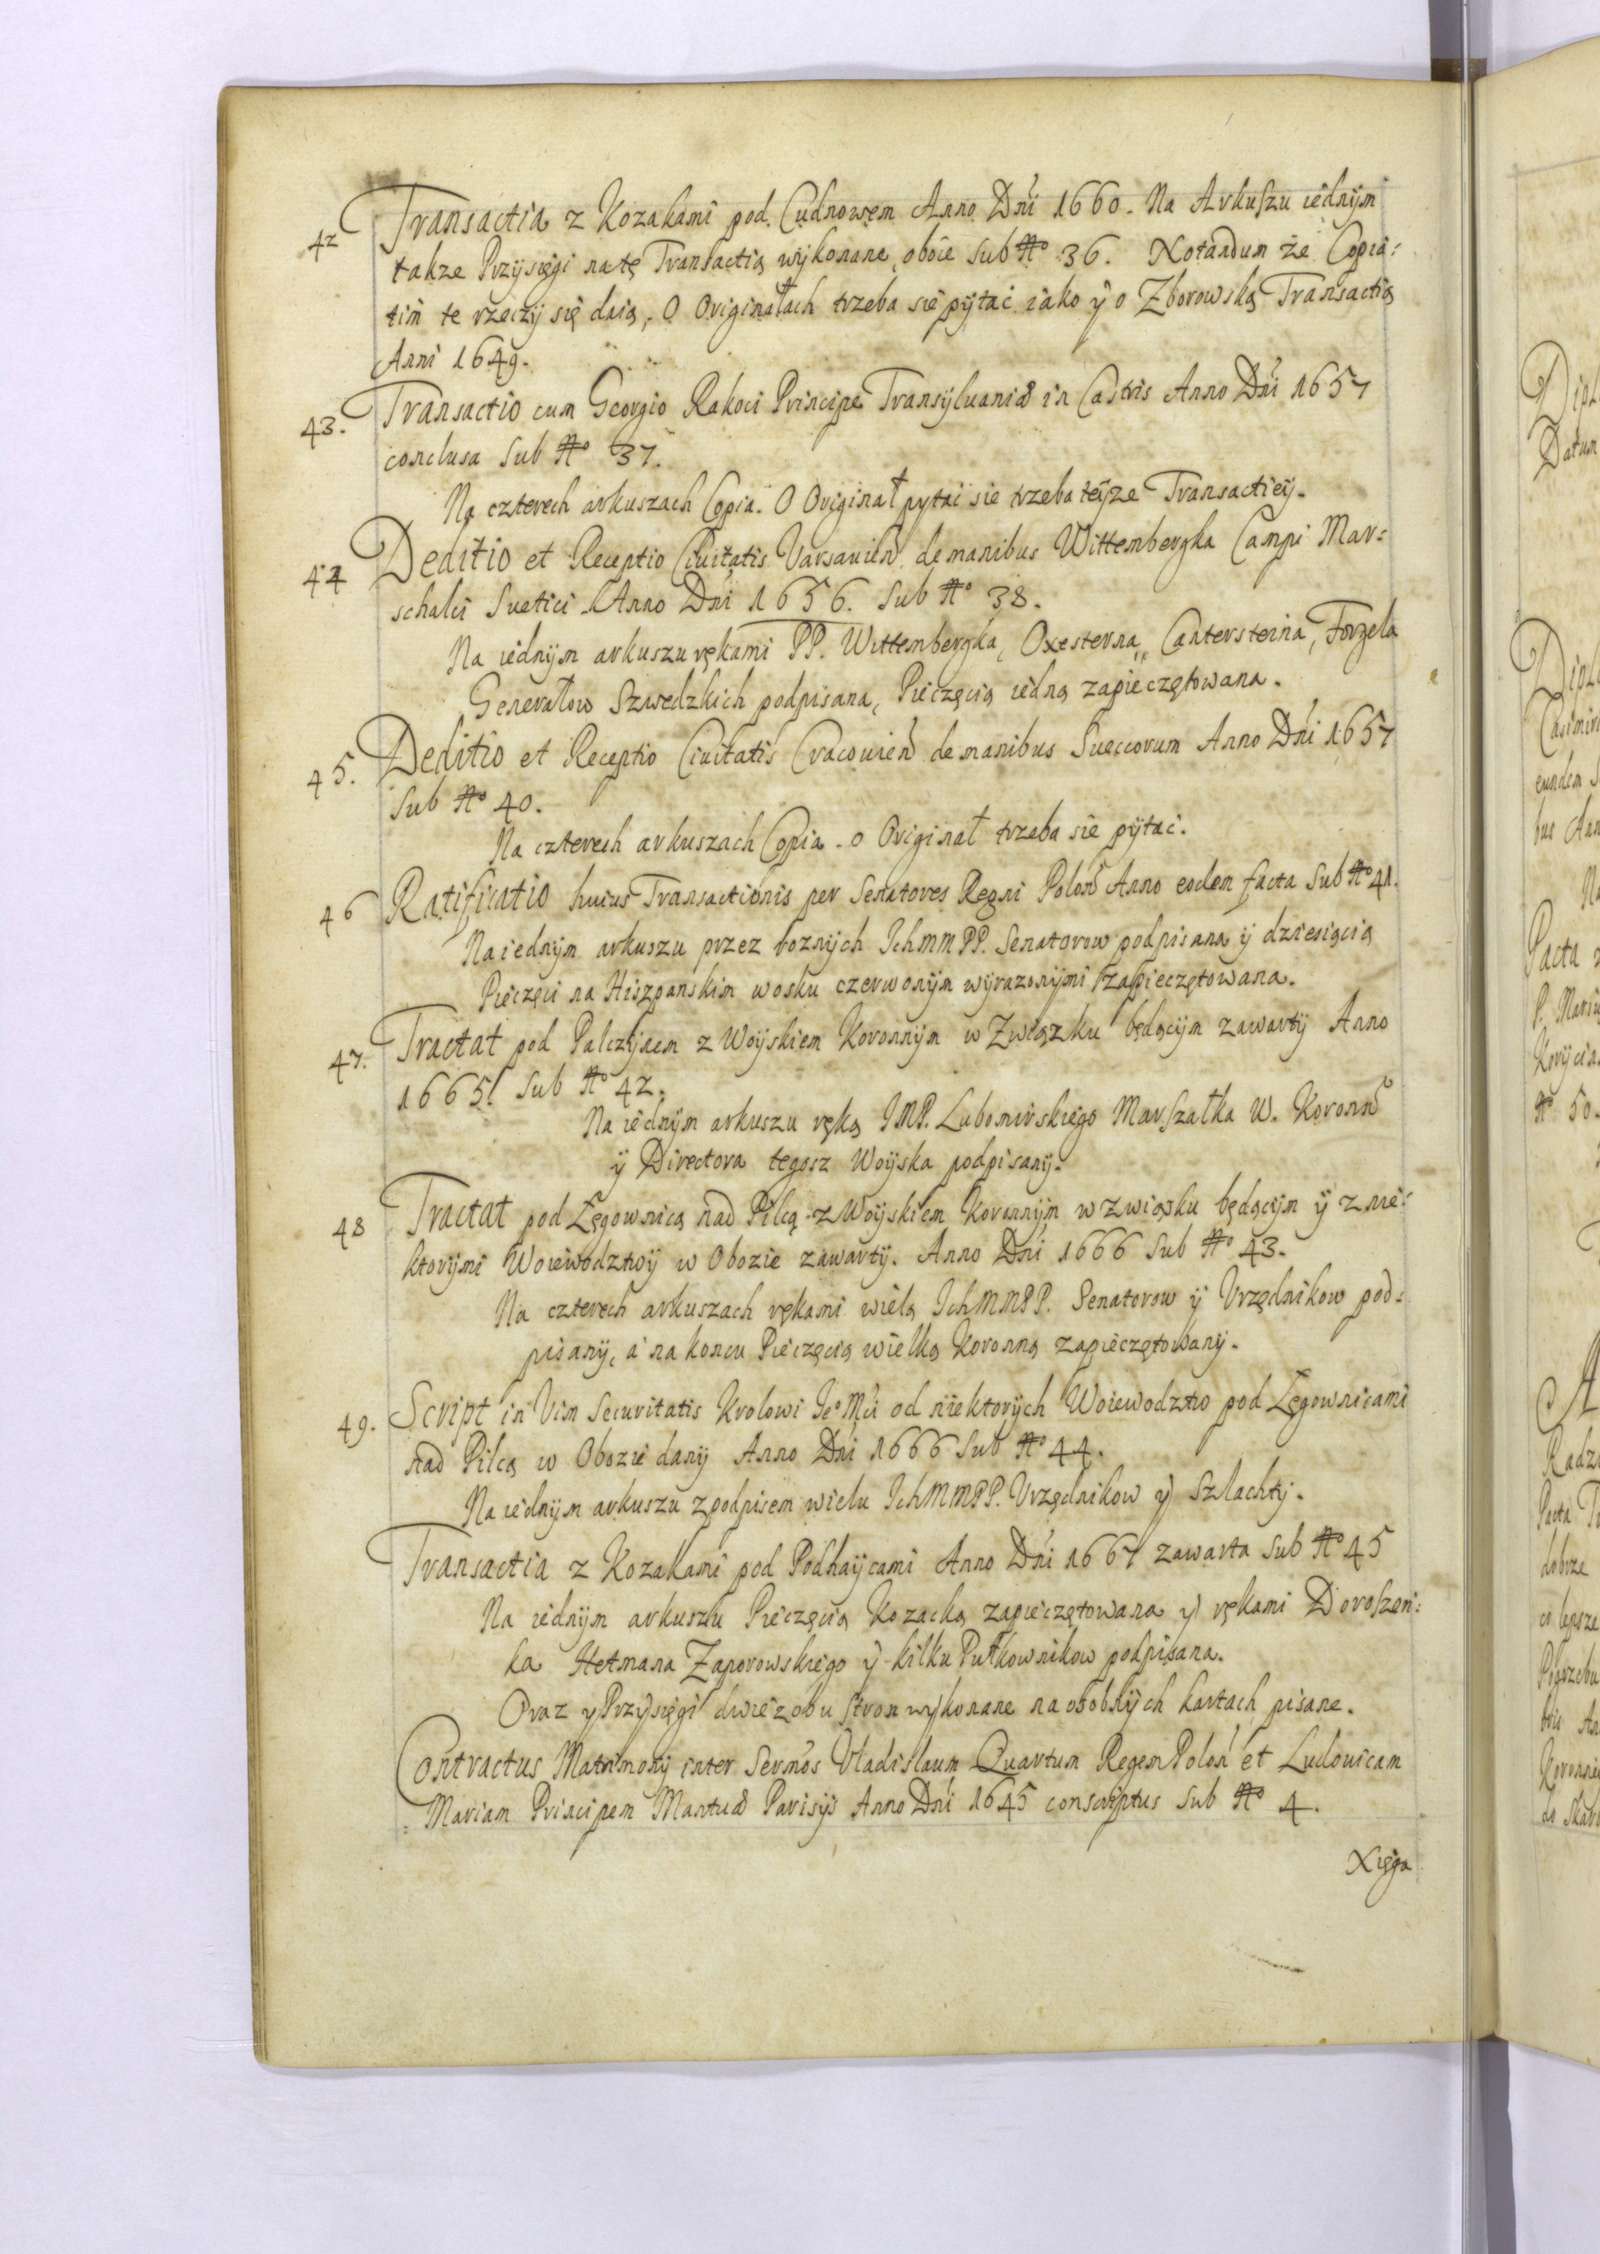 42 Transactia z Kozakami pod Cudnowem Anno Dni 1660. Na Arkuszu iednym
takze Przysięgi na tę Transactią wykonane oboie Sub No 36. Notandum że Copia:
tim te rzeczy się daią, O Originałach trzeba sie pytać iako y o Zborowską Transactią
Anni 1649.
43. Transactio cum Georgio Rakoci Principe Transyluaniæ in Castris Anno Dni 1657
conclusa Sub No 37.
Na czterech arkuszach Copia. O Originał pytać sie trzeba teyze Transactiey.
44 Deditio et Receptio Ciuitatis Varsauien de manibus Wittembergka Campi Mar:
schalci Suetici Anno Dni 1656. Sub No 38.
Na iednym arkuszu rękami PP. Wittembergka, Oxesterna, Cantersteina, Forzela
Generałow Szwedzkich podpisana, Pieczęcią iedną zapieczętowana.
45. Deditio et Receptio Ciuitatis Cracouien de manibus Sueccorum Anno Dni 1657
Sub No 40.
Na czterech arkuszach Copia. o Originał trzeba sie pytać.
46 Ratificatio huius Transactionis per Senatores Regni Polon Anno eodem facta Sub No 41.
Na iednym arkuszu przez roznych IchMMPP. Senatorow podpisana y dziesiącią
Pieczęci na Hiszpanskim wosku czerwonym wyrazonymi zapieczętowana.
47. Tractat pod Palczynem z Woyskiem Koronnym w Związku będącym zawarty Anno
1665. Sub No 42.
Na iednym arkuszu ręką IMP. Lubomirskiego Marszałka W. Koronn
y Directora tegosz Woyska podpisany.
48 Tractat pod Łęgownicą nad Pilcą z Woyskiem Koronnym w zwiąsku będącym y z nie:
ktorymi Woiewodztwy w Obozie zawarty. Anno Dni 1666 Sub No 43.
Na czterech arkuszach rękami wielą IchMMPP. Senatorow y Vrzędnikow pod:
pisany, a na koncu Pieczęcią wielką Koronną zapieczętowany.
49. Script in Vim Securitatis Krolowi Ie° Mci od niektorych Woiewodztw pod Łęgownicami
nad Pilcą w Obozie dany Anno Dni 1666 Sub No 44.
Na iednym arkuszu z podpisem wielu IchMMPP. Vrzędnikow y Szlachty.
Transactia z Kozakami pod Podhaycami Anno Dni 1667 zawarta Sub No 45
Na iednym arkuszu Pieczęcią Kozacką zapieczętowana y rękami Doroszen:
ka Hetmana Zaporowskiego y kilku Pułkownikow podpisana.
Oraz y Przysięgi dwie z obu stron wykonane na osobnych kartach pisane.
Contractus Matrimony inter Sermos Vladislaum Quartum Regem Polon et Ludouicam
Mariam Principem Mantuæ Parisys Anno Dni 1645 conscriptus Sub No 4.
Xięga